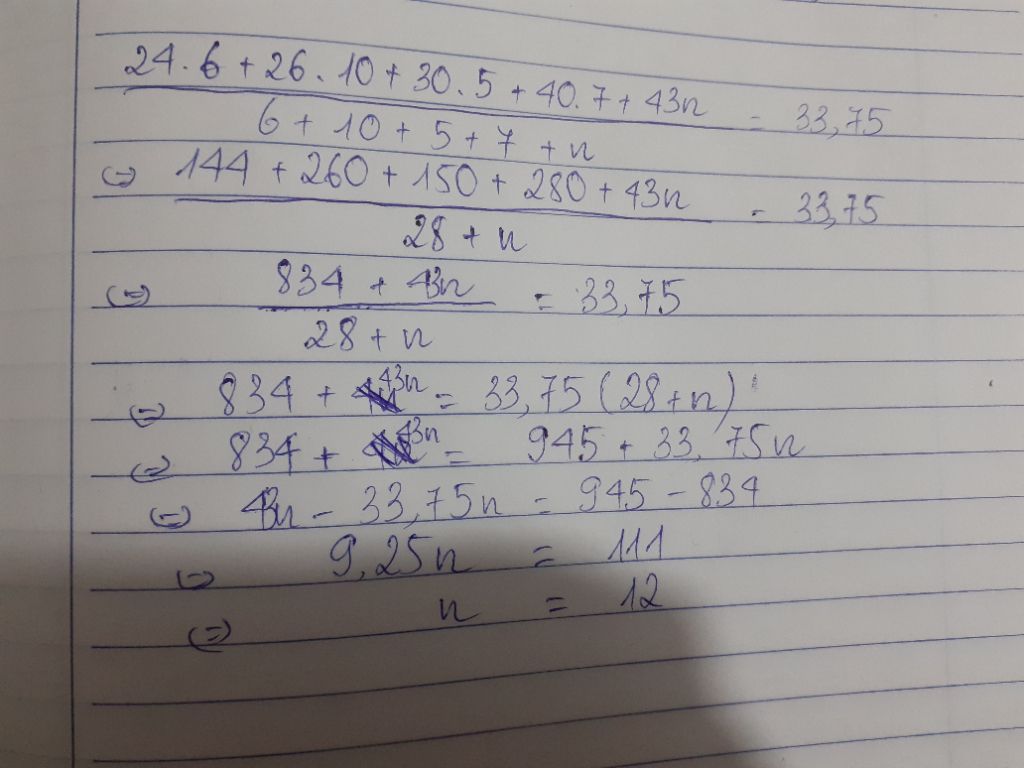 24.6 + 26.10 + 30.5 + 40.7 + 43n = 33,75
6 + 10 + 5 + 7 + n
(=) 144 + 260 + 150 + 280 + 43n = 33,75
28 + n
(=) 834 + 43n = 33,75
28 + n
(=) 834 + 43n = 33,75 (28 + n)
(=) 834 + 43n = 945 + 33,75n
(=) 43n - 33,75n = 945 - 834
(=) 9,25n = 111
(=) n = 12